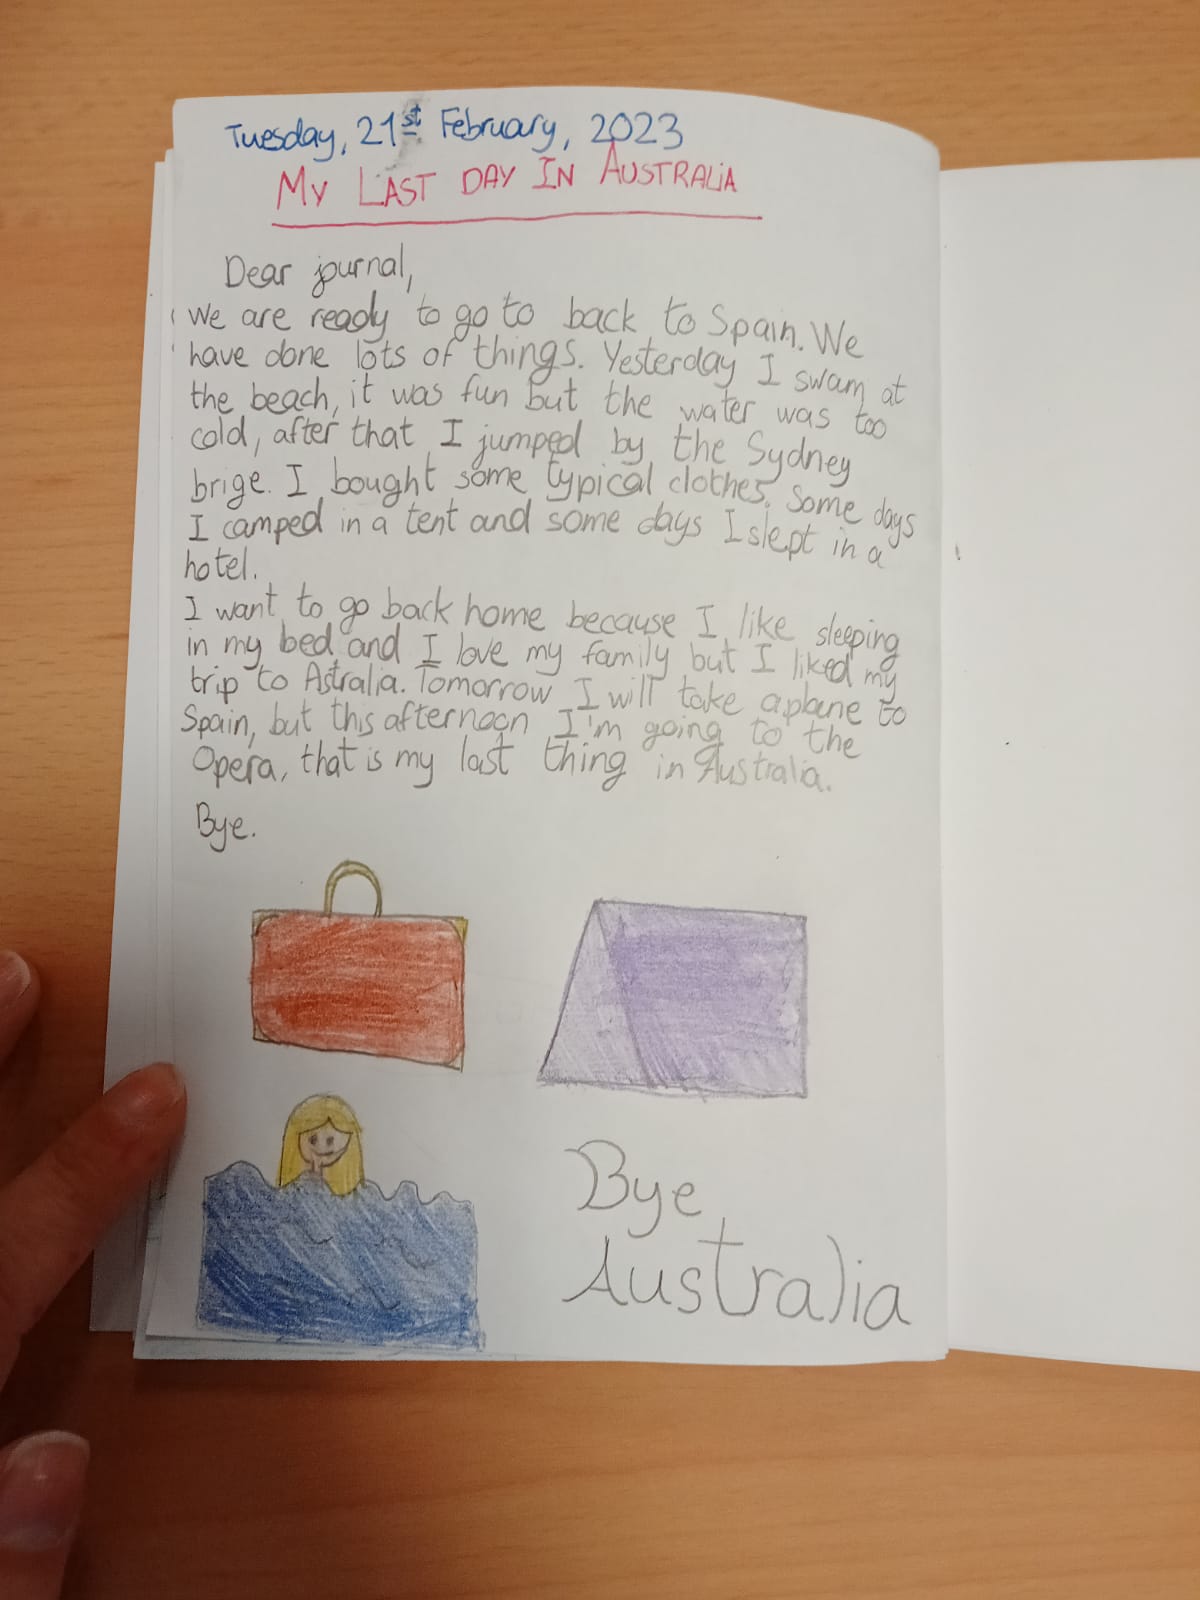 Tuesday, 21st February, 2023
MY LAST DAY IN AUSTRALIA
Dear journal,
We are ready to go to back to Spain. We
have done lots of things. Yesterday I swam at
the beach, it was fun but the water was too
cold, after that I jumped by the Sydney
brige. I bought some typical clothes. Some days
I camped in a tent and some days I slept in a
hotel.
I want to go back home because I like sleeping
in my bed and I love my family but I liked my
trip to Astralia. Tomorrow I will take a plane to
Spain, but this afternoon I'm going to the
Opera, that is my last thing in Australia.
Bye.
Bye
Australia